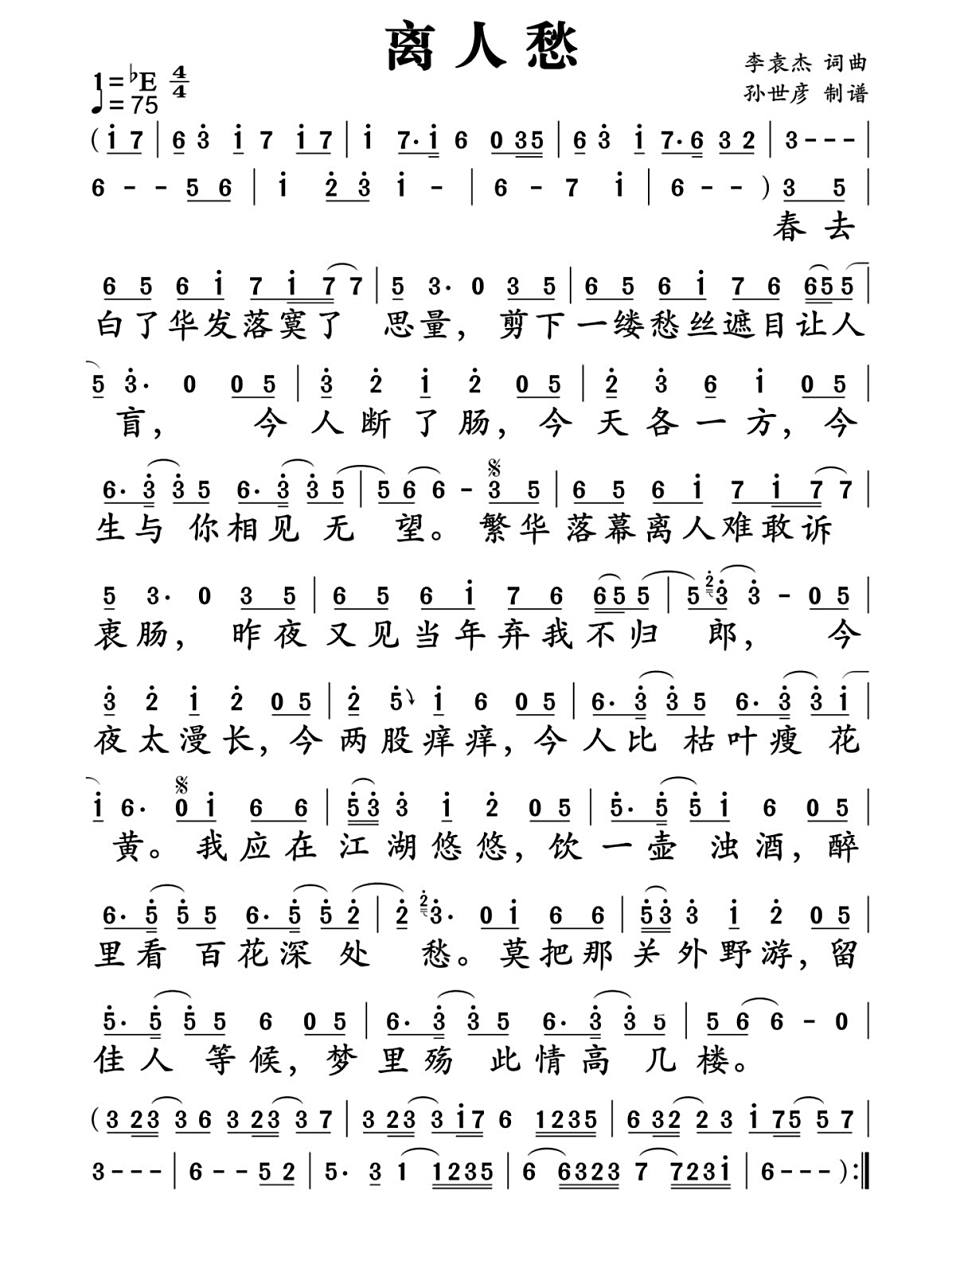 离人愁
李袁杰 词曲
1=♭E 4/4
♩=75
孙世彦 制谱
( i 7 | 6 3 i 7 i 7 | i 7. i 6 0 3 5 | 6 3 i 7. 6 3 2 | 3 - - - |
6 - - 5 6 | i 2 3 i - | 6 - 7 i | 6 - - ) 3 5 |
春去
6 5 6 i 7 i 7 7 | 5 3. 0 3 5 | 6 5 6 i 7 6 6 5 5 |
白了华发落寞了 思量，剪下一缕愁丝遮目让人
5 3. 0 0 5 | 3 2 i 2 0 5 | 2 3 6 i 0 5 |
盲， 今人断了肠，今天各一方，今
6. 3 3 5 6. 3 3 5 | 5 6 6 - 3 5 | 6 5 6 i 7 i 7 7 |
生与 你相见 无 望。 繁华落幕离人难敢诉
5 3. 0 3 5 | 6 5 6 i 7 6 6 5 5 | 5 2 3 3 - 0 5 |
衷肠， 昨夜又见当年弃我不归 郎， 今
3 2 i 2 0 5 | 2 5 i 6 0 5 | 6. 3 3 5 6. 3 3 i |
夜太漫长，今两股痒痒，今人比 枯叶瘦 花
i 6. 0 i 6 6 | 5 3 3 i 2 0 5 | 5. 5 5 i 6 0 5 |
黄。 我应在江湖悠悠，饮一壶 浊酒，醉
6. 5 5 5 6. 5 5 2 | 2 2 3. 0 i 6 6 | 5 3 3 i 2 0 5 |
里看 百花深 处 愁。莫把那关外野游，留
5. 5 5 5 6 0 5 | 6. 3 3 5 6. 3 3 5 | 5 6 6 - 0 |
佳人 等候，梦里殇 此情高 几楼。
( 3 2 3 3 6 3 2 3 3 7 | 3 2 3 2 3 i 7 6 1 2 3 5 | 6 3 2 2 3 i 7 5 5 7 |
3 - - - | 6 - - 5 2 | 5. 3 1 1 2 3 5 | 6 6 3 2 3 7 7 2 3 i | 6 - - - ) :||